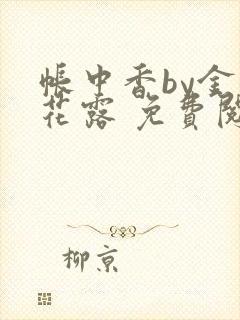 帳中香by金
花露 免費閱
柳京